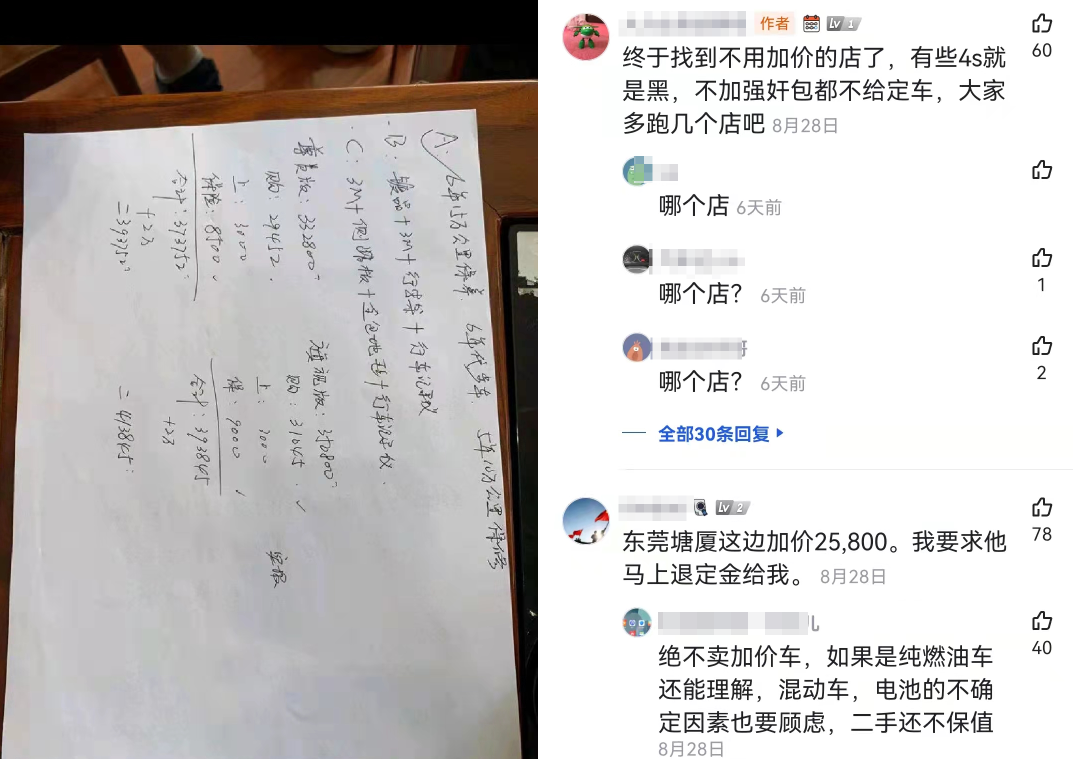 A. 6年15万公里保养 6年代步车 5年10万公里保修
B: 镀晶+3M+行李架+行车记录仪
C: 3M+侧踏板+全包地毯+行车记录仪
尊贵版: 332800
购: 29452
上: 3000
保险: 8500
合计: 373752
+2万
=393752
旗舰版: 350800
购: 31045
上: 3000
保: 9000
合计: 393845
+2万
=413845
作者
Lv 1
60
终于找到不用加价的店了，有些4s就
是黑，不加强奸包都不给定车，大家
多跑几个店吧 8月28日
哪个店 6天前
哪个店？ 6天前
1
哥
哪个店？ 6天前
2
全部30条回复
Lv 2
78
东莞塘厦这边加价25,800。我要求他
马上退定金给我。 8月28日
儿
40
绝不卖加价车，如果是纯燃油车
还能理解，混动车，电池的不确
定因素也要顾虑，二手还不保值
8月28日